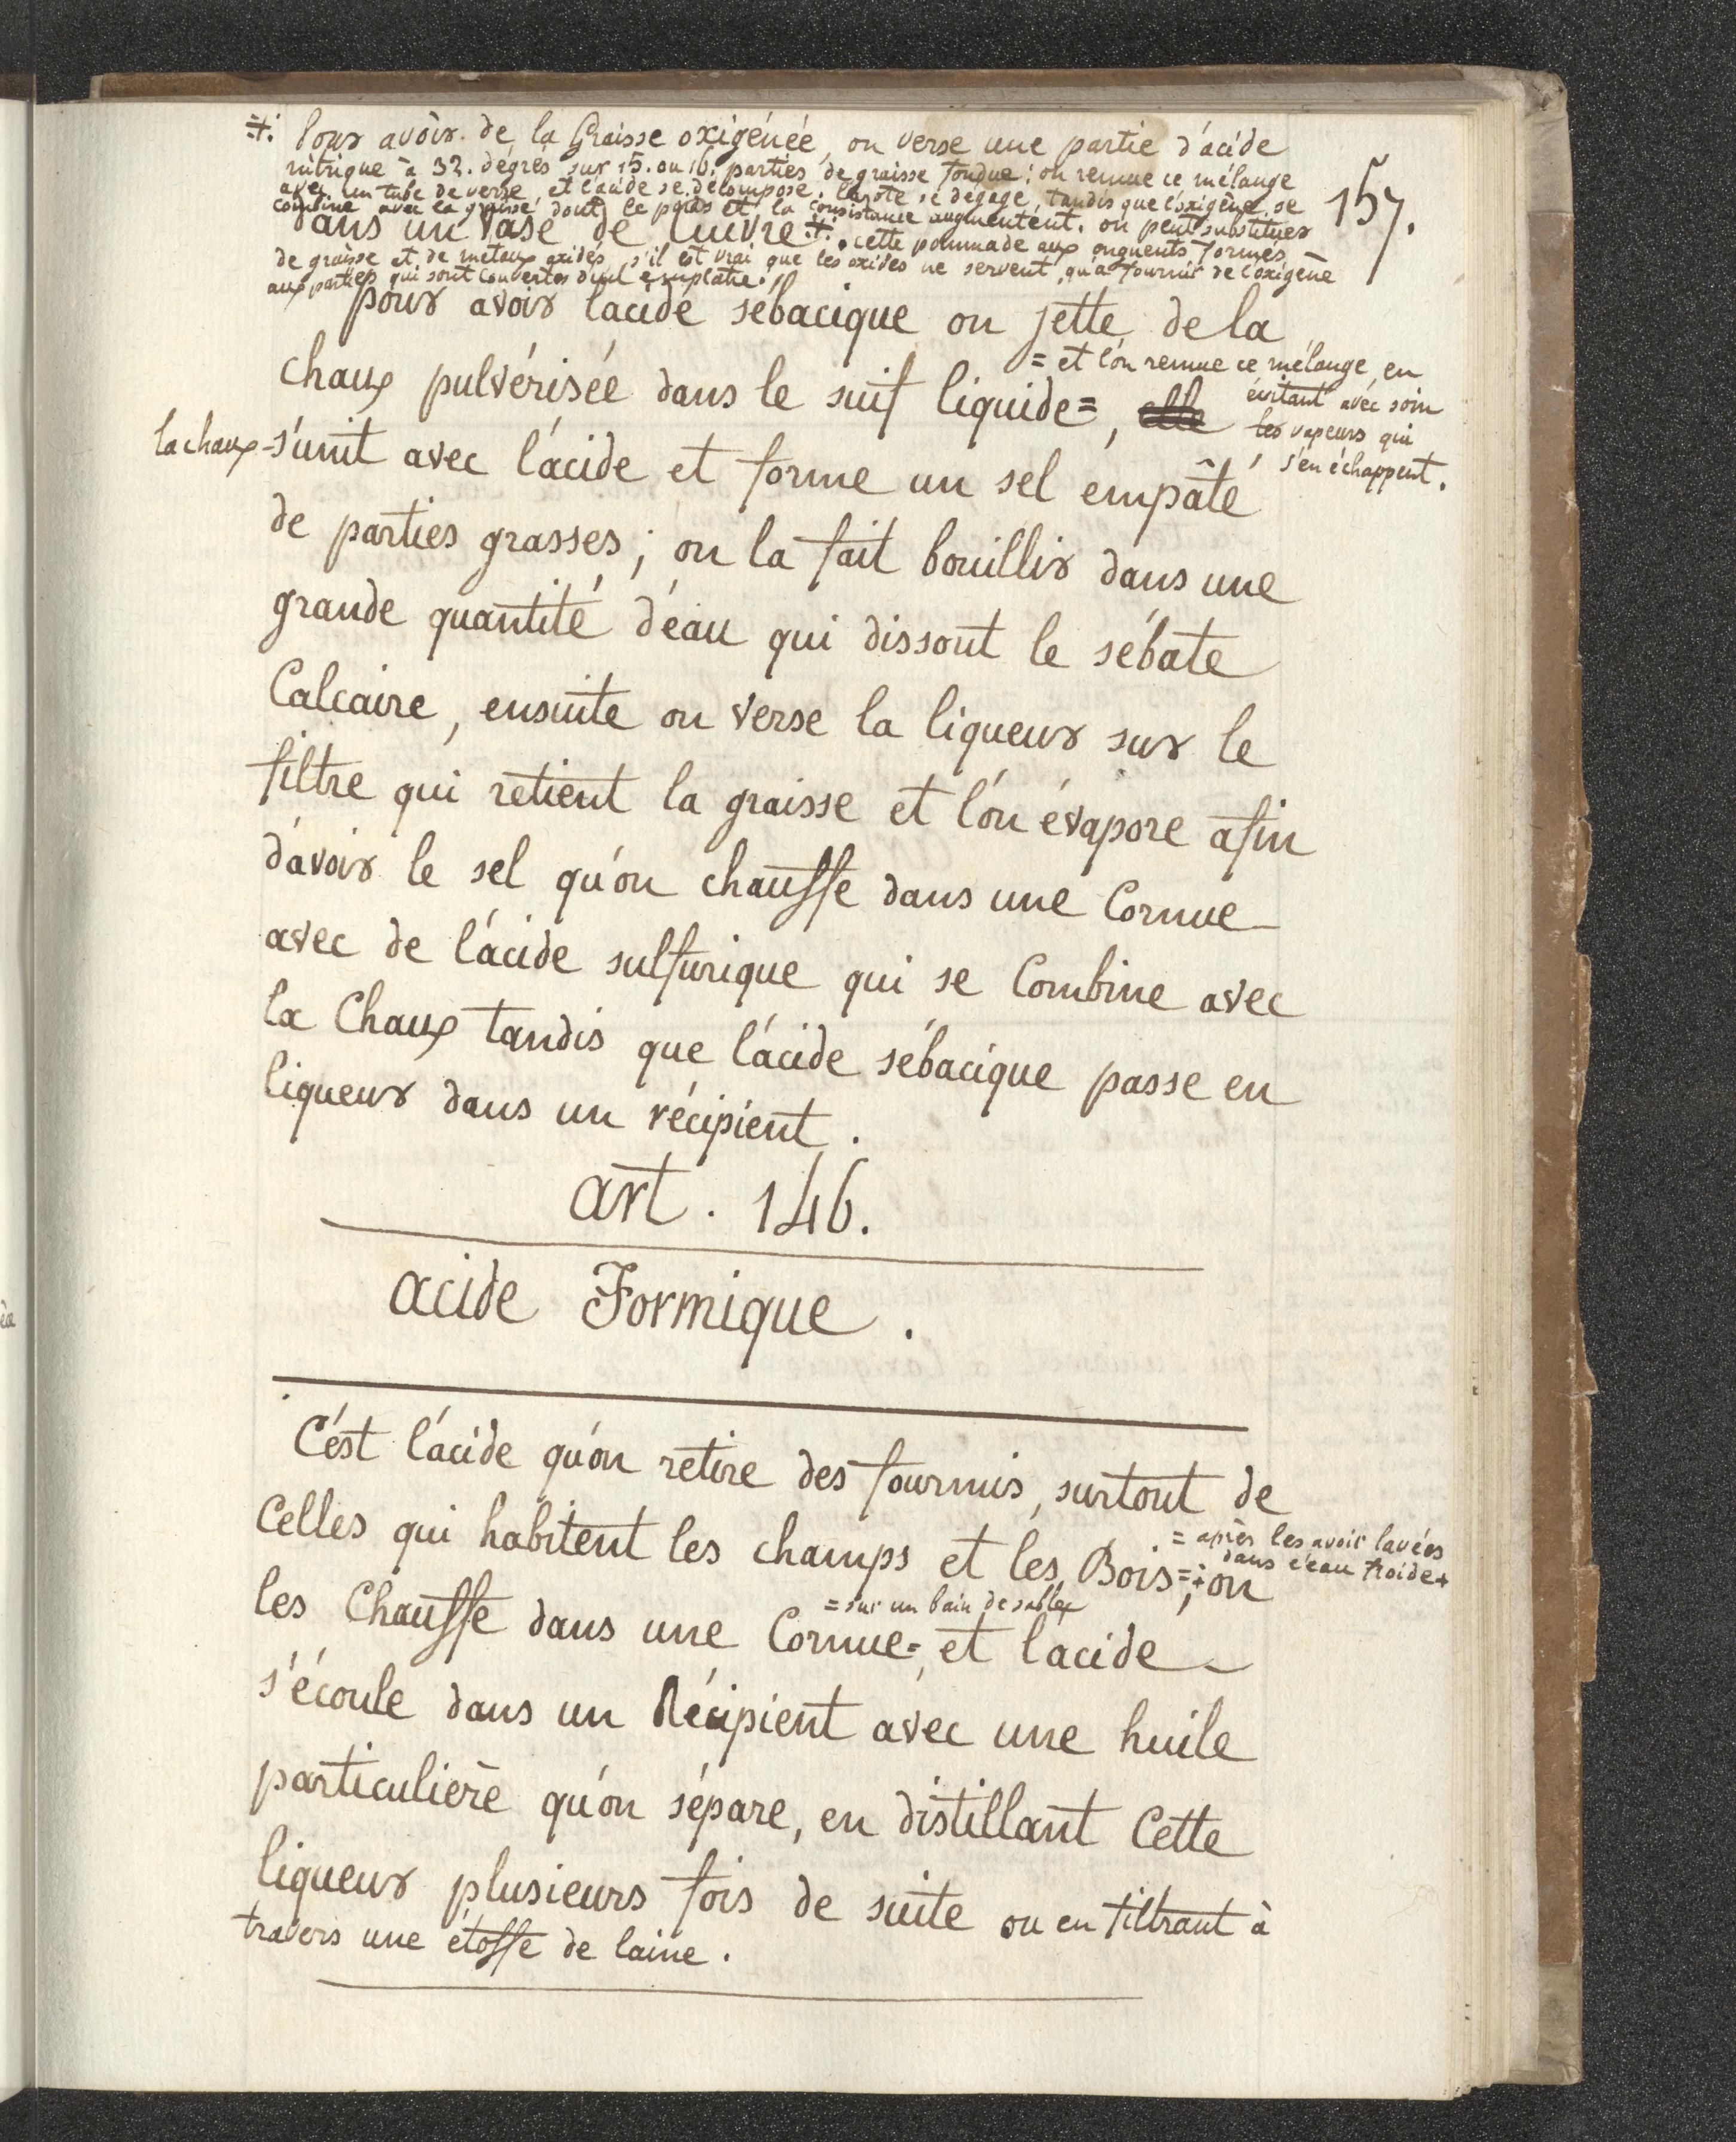 157.
≠. Pour avoir de la Graisse oxigénée, on verse une partie d'acide
nitrique à 32. dégrés sur 15. ou 16. parties de graisse fondue; on remue ce mélange
avec un tube de verre, et l'acide se décompose. l'azote se dégage, tandis que l'oxigène se
combine avec la graisse dont le poids et la consistance augmentent. on peut substituer
dans un vase de Cuivre ≠.
cette pommade aux onguents formés
de graisse et de métaux oxidés, s'il est vrai que les oxides ne servent qu'à fournir de l'oxigène
aux parties qui sont couvertes d'un emplatre.
pour avoir l'acide sébacique on jette de la
chaux pulvérisée dans le suif liquide=, elle
= et l'on remue ce mélange, en
évitant avec soin
les vapeurs qui
s'en échappent.
la chaux s'unit avec l'acide et forme un sel empâté
de parties grasses; on la fait bouillir dans une
grande quantité d'éau qui dissout le sébate
Calcaire, ensuite on verse la liqueur sur le
filtre qui retient la graisse et l'on évapore afin
d'avoir le sel qu'on chauffe dans une Cornue
avec de l'acide sulfurique qui se Combine avec
la Chaux tandis que l'acide sébacique passe en
liqueur dans un récipient.
art. 146.
acide Formique.
C'est l'acide qu'on retire des fourmis, surtout de
Celles qui habitent les champs et les Bois=; on
= après les avoir lavées
dans l'eau froide+
les Chauffe dans une Cornue=, et l'acide
= sur un bain de sable
s'écoule dans un Récipient avec une huile
particulière qu'on sépare, en distillant Cette
liqueur plusieurs fois de suite ou en filtrant à
travers une étoffe de laine.